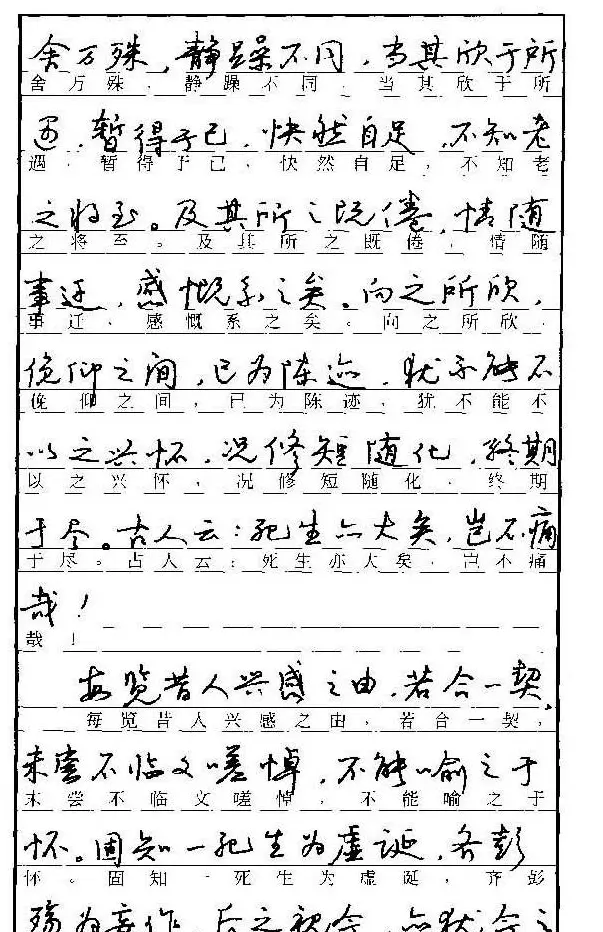 舍万殊，静躁不同，当其欣于所
舍万殊，静躁不同，当其欣于所
遇，暂得于己，快然自足，不知老
遇，暂得于己，快然自足，不知老
之将至。及其所之既倦，情随
之将至。及其所之既倦，情随
事迁，感慨系之矣。向之所欣，
事迁，感慨系之矣。向之所欣，
俛仰之间，已为陈迹，犹不能不
俛仰之间，已为陈迹，犹不能不
以之兴怀，况修短随化，终期
以之兴怀，况修短随化，终期
于尽。古人云：死生亦大矣，岂不痛
于尽。古人云：死生亦大矣，岂不痛
哉！
哉！
每览昔人兴感之由，若合一契，
每览昔人兴感之由，若合一契，
未尝不临文嗟悼，不能喻之于
未尝不临文嗟悼，不能喻之于
怀。固知一死生为虚诞，齐彭
怀。固知一死生为虚诞，齐彭
殇为妄作，后之视今，亦犹今之